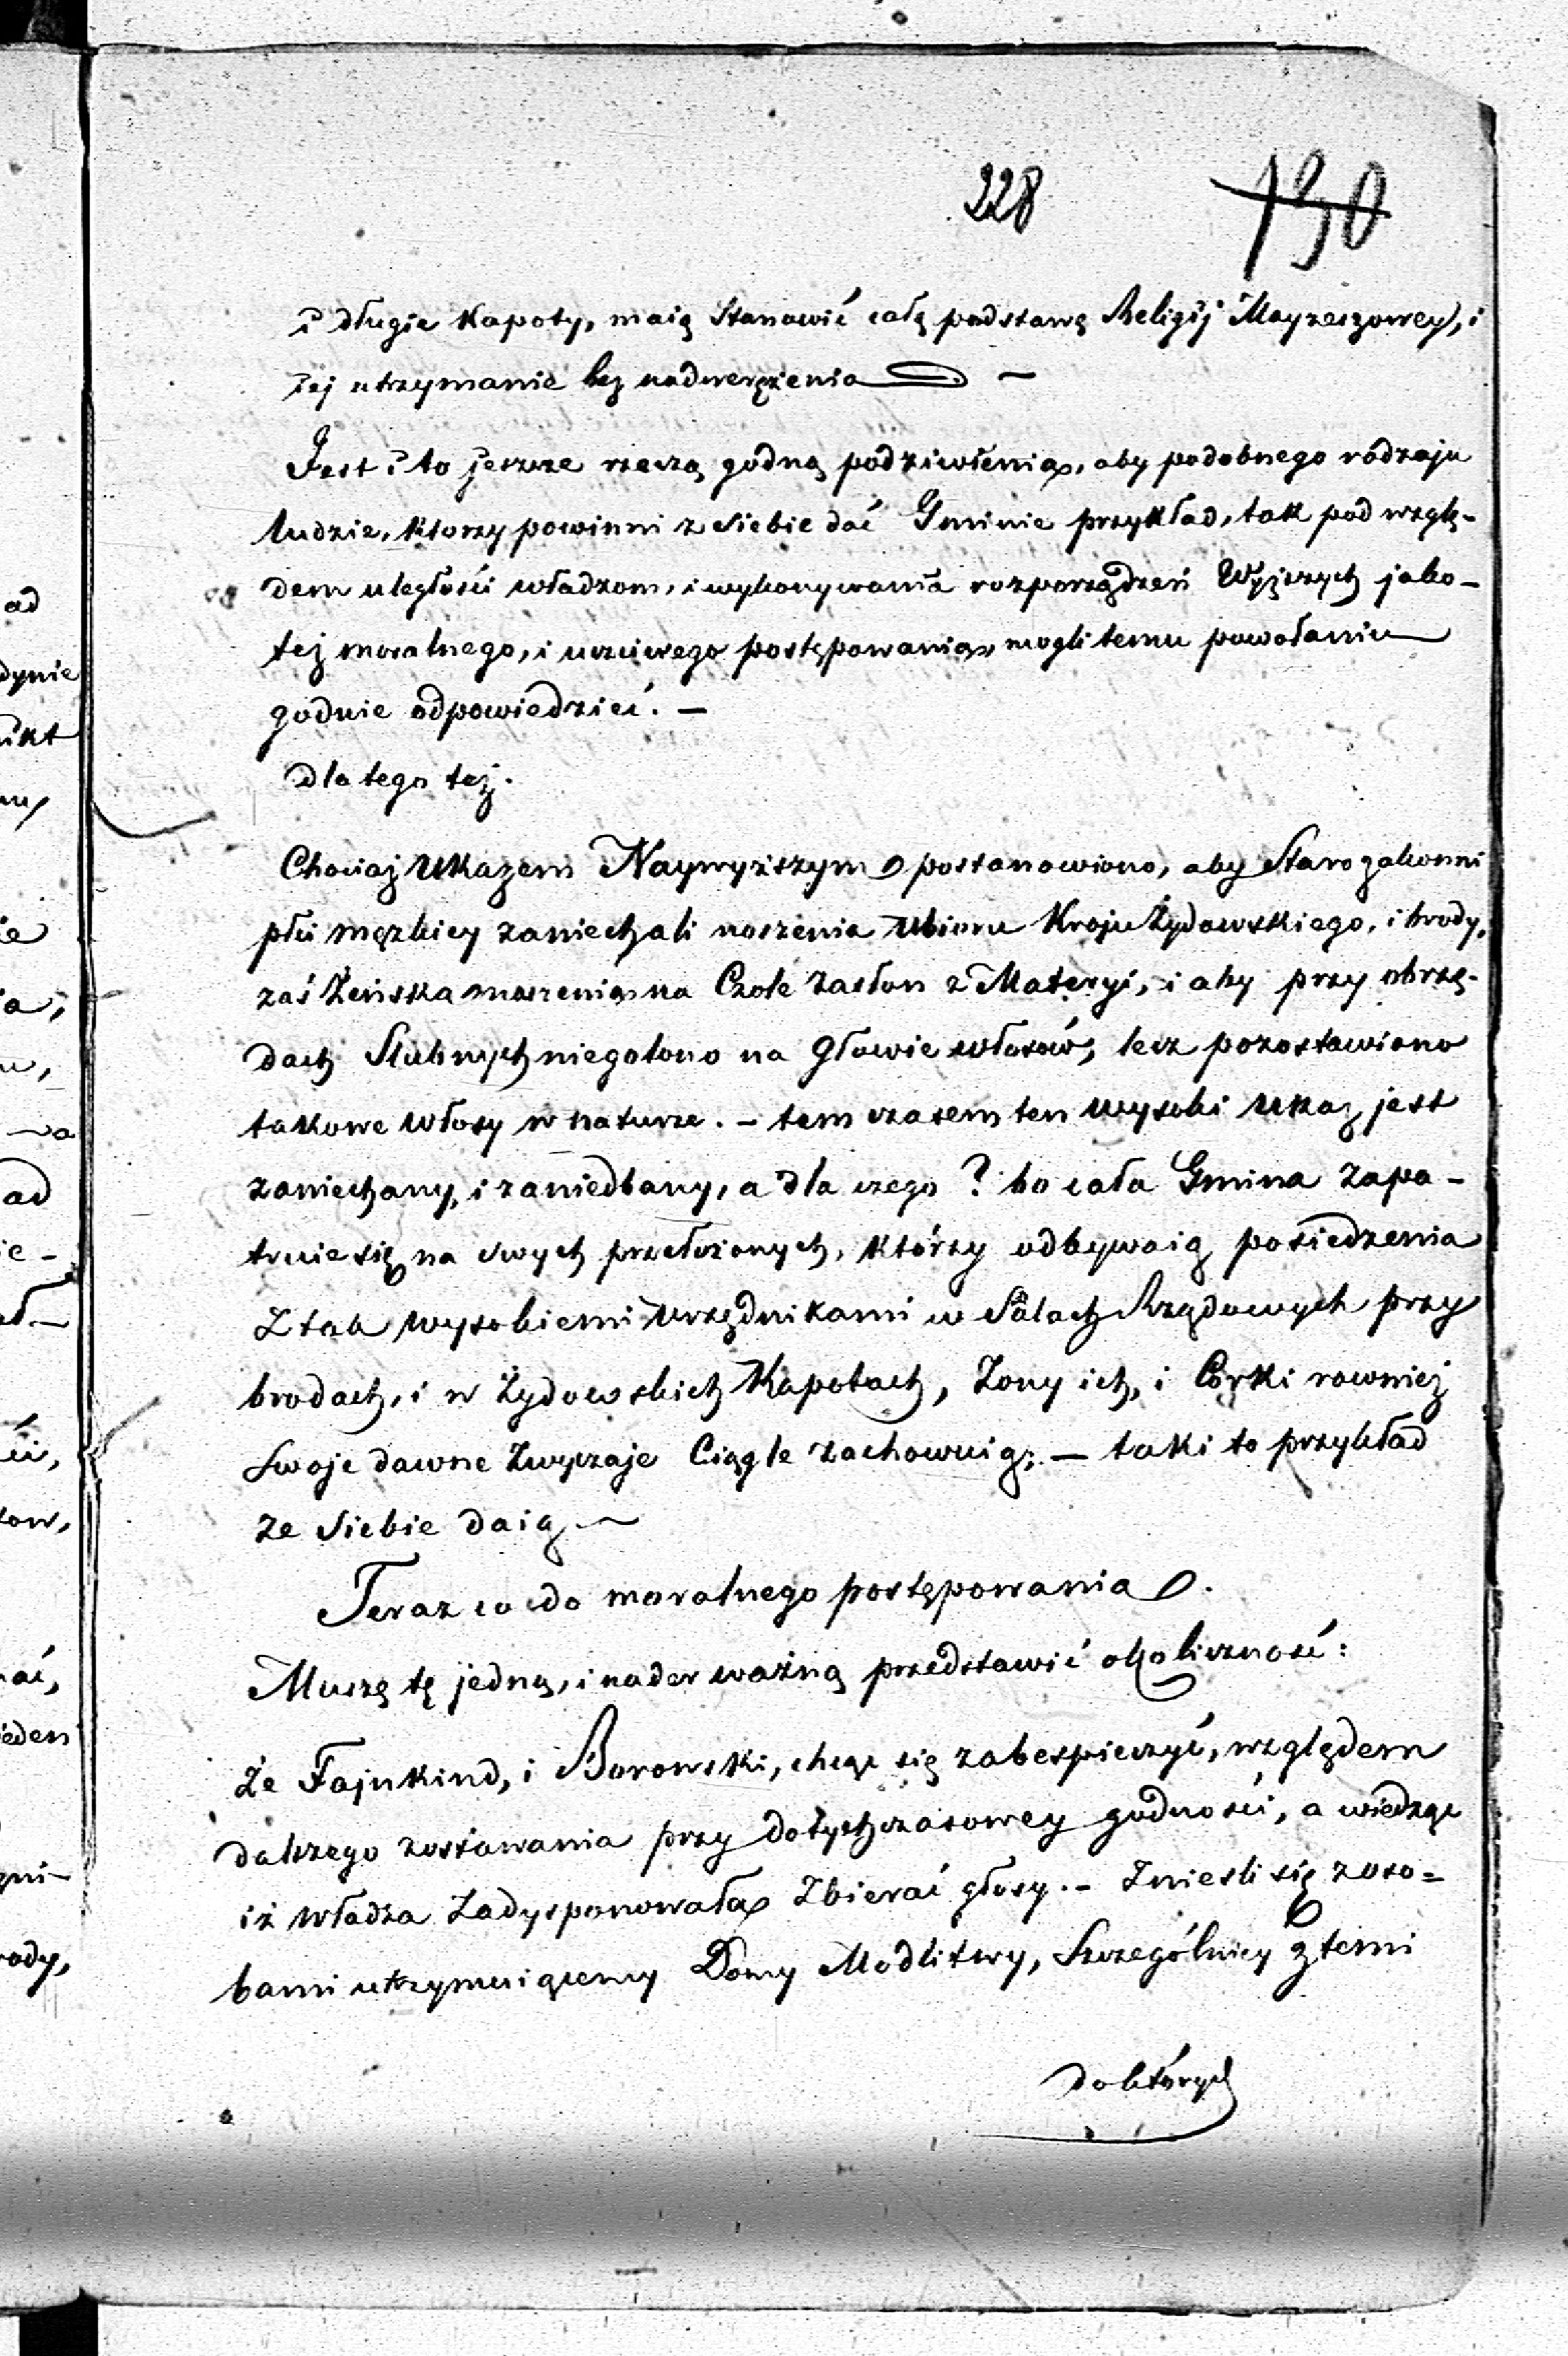 228 130
i długie Kapoty, maią Stanowić całą podstawę Religij Moyżeszowey, i
iej utrzymanie bez nadwerężenia —
Jest i to jeszcze rzeczą godną podziwienia, aby podobnego rodzaju
ludzie, ktorzy powinni z siebie dać Gminie przykład, tak pod wzglę-
dem uległości władzom, i wykonywania rozporządzeń Wyższych jako-
też moralnego, i uczciwego postępowania, mogli temu powołaniu
godnie odpowiedzieć. —
dla tego też.
Chociaż Ukazem Naywyższym postanowiono, aby Starozakonni
płci męzkiey zaniechali noszenia Ubioru Kroju Żydowskiego, i brody,
zaś Żeńska noszenia na Czole zasłon z Materyi, i aby przy obrzę-
dach Slubnych niegolono na Głowie włosów, lecz pozostawiono
takowe Włosy w naturze. – tem czasem ten Wysoki Ukaz jest
zaniechany, i zaniedbany, a dla czego? bo cała Gmina Zapa-
truie się na swych przełożonych, którzy odbywaią posiedzenia
Z tak wysokiemi Urzędnikami w Salach Rządowych przy
brodach, i w Żydowskich Kapotach, Żony ich, i Córki rowniez
Swoje dawne Zwyczaje Ciągle Zachowuią; — taki to przykład
ze Siebie daią —
Teraz co do moralnego postępowania.
Muszę tę jedną, i nader ważną przedstawić okoliczność:
że Fajnkind, i Borowski, chcąc się zabespieczyć, względem
dalszego zostawania przy dotychczasowey godności, a wiedząc
iż Władza Zadysponowała Zbierać głosy. – Znieśli się z oso=
bami utrzymuiącemy Domy Modlitwy, Szczególniey z temi
do których